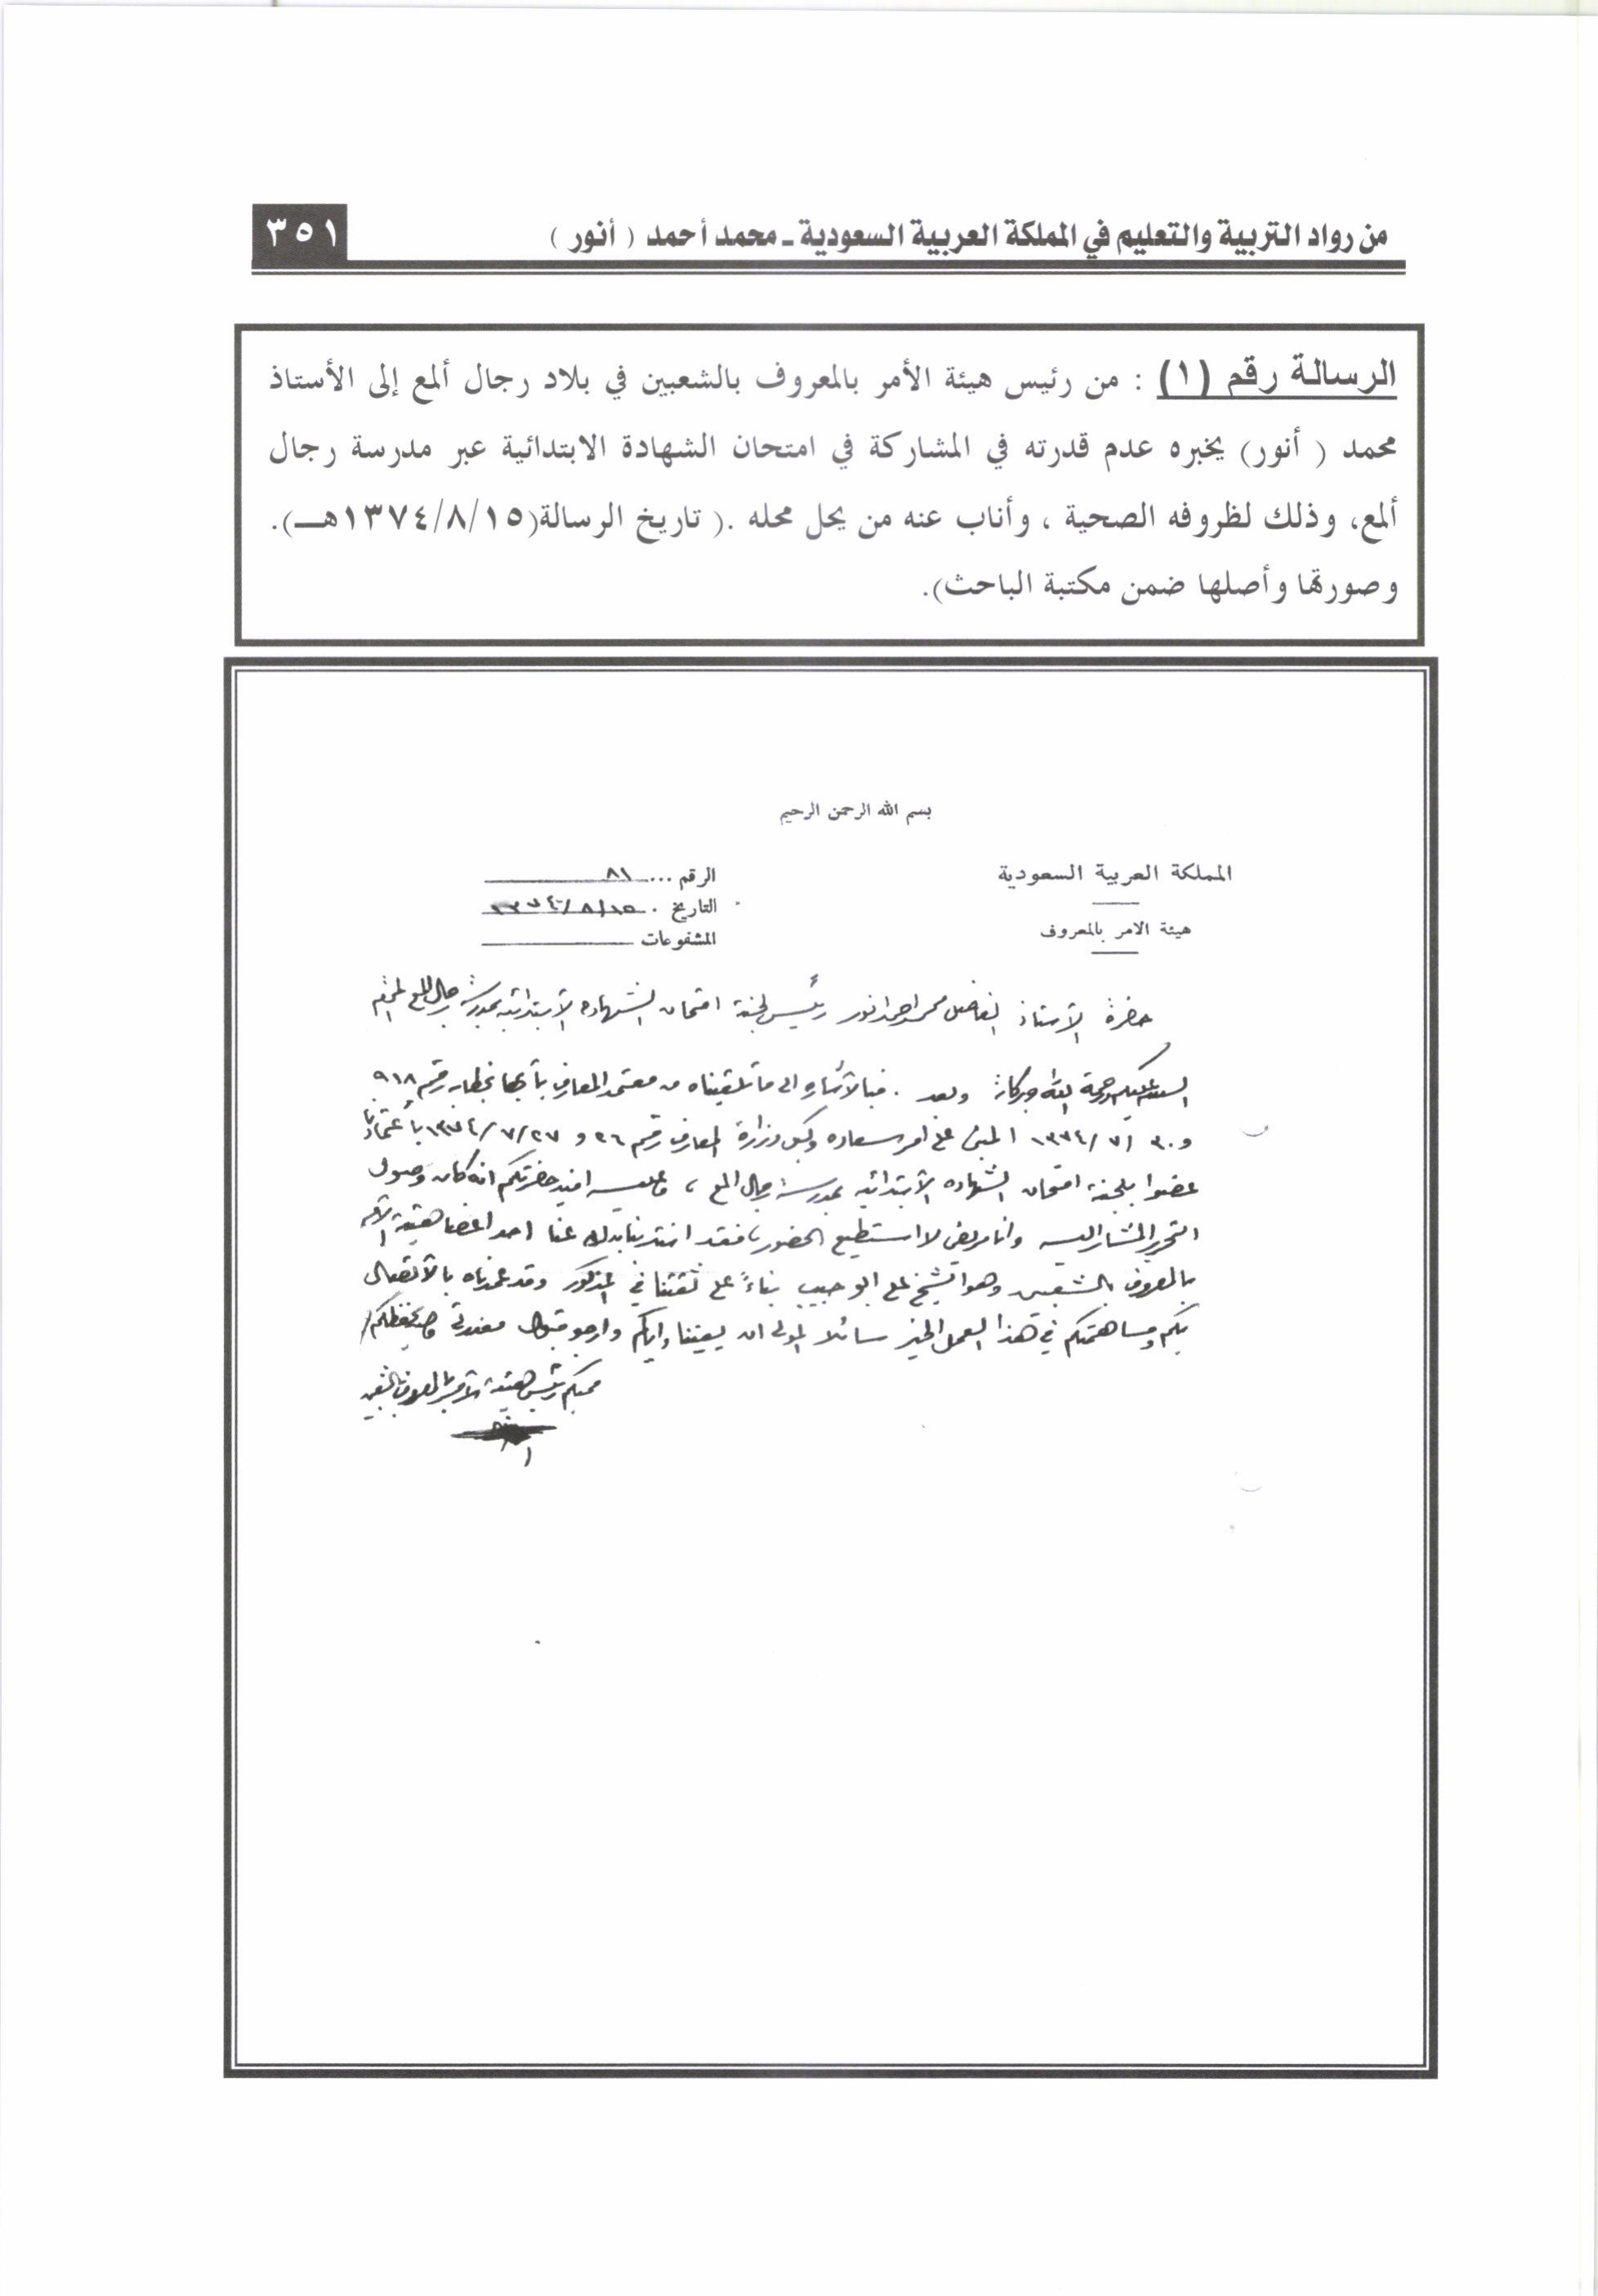 من رواد التربية والتعليم في المملكة العربية السعودية ـ محمد أحمد ( أنور )
٣٥١
الرسالة رقم (١) : من رئيس هيئة الأمر بالمعروف بالشعبين في بلاد رجال ألمع إلى الأستاذ
محمد ( أنور) يخبره عدم قدرته في المشاركة في امتحان الشهادة الابتدائية عبر مدرسة رجال
ألمع، وذلك لظروفه الصحية ، وأناب عنه من يحل محله .( تاريخ الرسالة(١٣٧٤/٨/١٥هـ).
وصورتها وأصلها ضمن مكتبة الباحث).
بسم الله الرحمن الرحيم
المملكة العربية السعودية
هيئة الامر بالمعروف
الرقم ... ٨١
التاريخ . ١٣٧٤/٨/١٥
المشفوعات
حضرة الأستاذ الفاضل محمد احمد انور رئيس لجنة امتحان الشهاده الأبتدائيه بمدرسة رجال المع المحترم
السلام عليكم ورحمة الله وبركاته وبعد . فبالأشاره الى ما تلقيناه من معتمد المعارف بأبها بخطابه رقم ٩١٨
و ٧/٣٠/ ١٣٧٤ المبني على امر سعاده وكيل وزارة المعارف رقم ٢٦ و ١٣٧٤/٧/٢٧ بأعتمادنا
عضوا بلجنة امتحان الشهاده الأبتدائيه بمدرسة رجال المع ، وعليه افيد حضرتكم انه كان وصول
التحرير المشار اليه وانا مريض لا استطيع الحضور، فقد انتدبنا بدلا عنا احد اعضا هيئة الأمر
بالمعروف بالشعبين وهو الشيخ علي ابو حبيب بناءً على ثقتنا في المذكور وقد عمدناه بالأتصال
بكم ومساهمتكم في هذا العمل الخير سائلا المولى ان يعيننا واياكم وارجو قبول معذرتي والله يحفظكم
محبكم رئيس هيئة الأمر بالمعروف بالشعبين